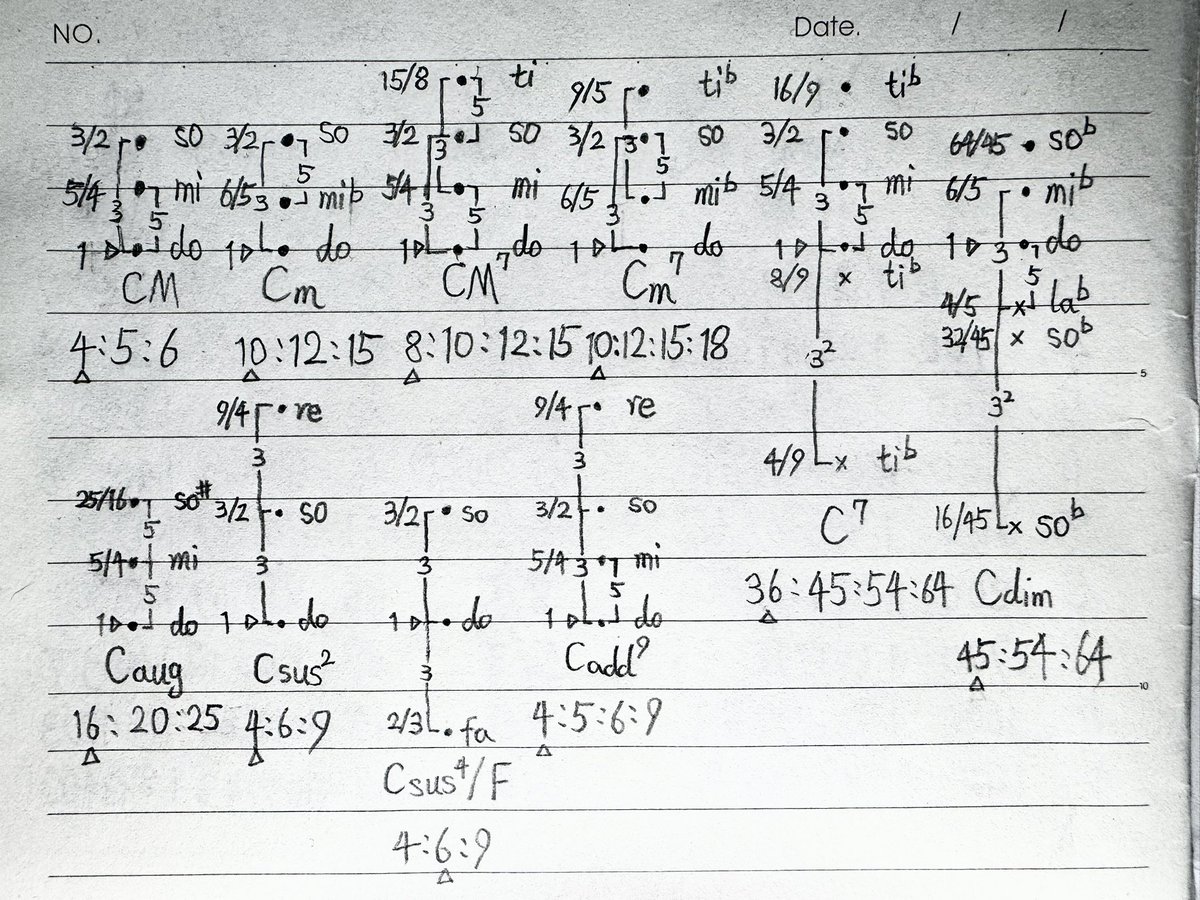 NO. Date. / /
15/8 5 ti 9/5 ti♭ 16/9 ti♭
3/2 so 3/2 so 3/2 3 so 3/2 3 so 3/2 so 64/45 so♭
5/4 3 5 mi 6/5 3 5 mi♭ 5/4 3 5 mi 6/5 3 5 mi♭ 5/4 3 5 mi 6/5 mi♭
1 do 1 do 1 do 1 do 1 do 1 3 5 do
CM Cm CM7 Cm7 8/9 x ti♭ 4/5 x la♭
32/45 x so♭
4:5:6 10:12:15 8:10:12:15 10:12:15:18 3²
5
9/4 re 9/4 re 3²
3 3 4/9 x ti♭
25/16 so# 3/2 so 3/2 so 3/2 so C7 16/45 x so♭
5
5/4 mi 3 3 5/4 3 mi
5 5
1 do 1 do 1 do 1 do 36:45:54:64 Cdim
Caug Csus2 3 Cadd9 45:54:64
10
16:20:25 4:6:9 2/3 fa 4:5:6:9
Csus4/F
4:6:9